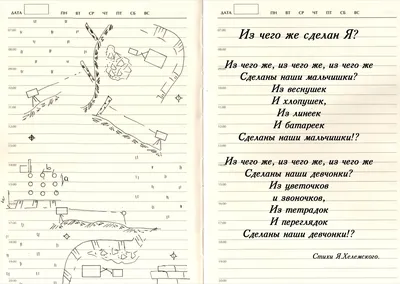 ДАТА ПН ВТ СР ЧТ ПТ СБ ВС
ДАТА ПН ВТ СР ЧТ ПТ СБ ВС
Из чего же сделан Я?
Из чего же, из чего же, из чего же
Сделаны наши мальчишки?
Из веснушек
И хлопушек,
Из линеек
И батареек
Сделаны наши мальчишки!?
Из чего же, из чего же, из чего же
Сделаны наши девчонки?
Из цветочков
и звоночков,
Из тетрадок
И переглядок
Сделаны наши девчонки!?
Стихи Я.Хелемского.